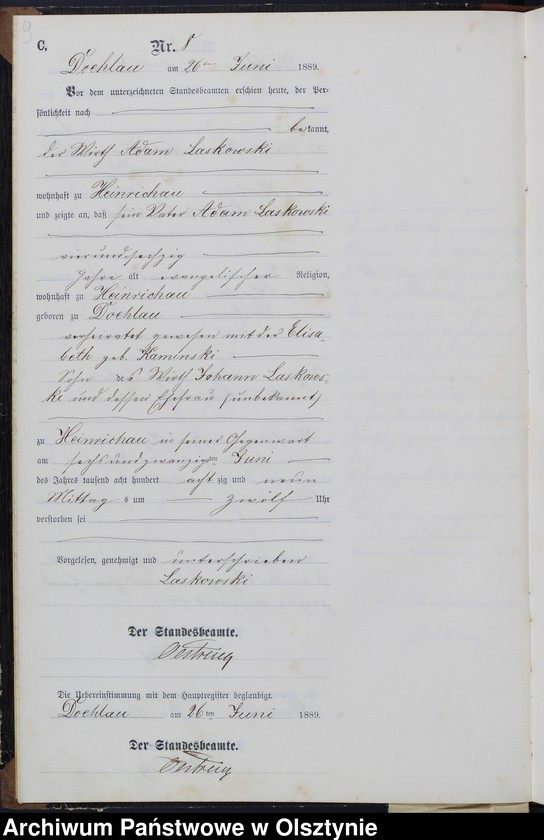 9
C.
Nr. 8
Doehlau am 26ten Juni 1889.
Vor dem unterzeichneten Standesbeamten erschien heute, der Per-
sönlichkeit nach
bekannt,
der Wirth Adam Laskowski
wohnhaft zu Heinrichau
und zeigte an, daß sein Vater Adam Laskowski
vierundsechzig
Jahre alt evangelischer Religion,
wohnhaft zu Heinrichau
geboren zu Doehlau
verheiratet gewesen mit der Elisa-
beth geb. Kaminski
Sohn des Wirth Johann Laskows-
ki und dessen Ehefrau (unbekannt)
zu Heinrichau in seiner Gegenwart
am sechsundzwanzigsten Juni
des Jahres tausend acht hundert achtzig und neun
Mittags um zwölf Uhr
verstorben sei
Vorgelesen, genehmigt und unterschrieben
Laskowski
Der Standesbeamte.
Die Uebereinstimmung mit dem Hauptregister beglaubigt.
Doehlau am 26ten Juni 1889.
Der Standesbeamte.
Archiwum Państwowe w Olsztynie